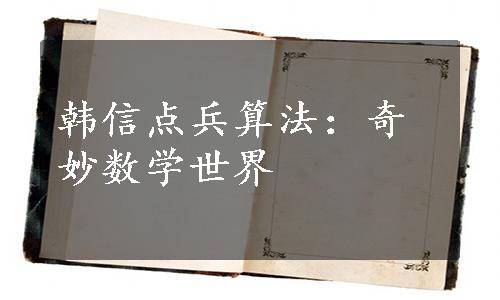 韩信点兵算法：奇
妙数学世界